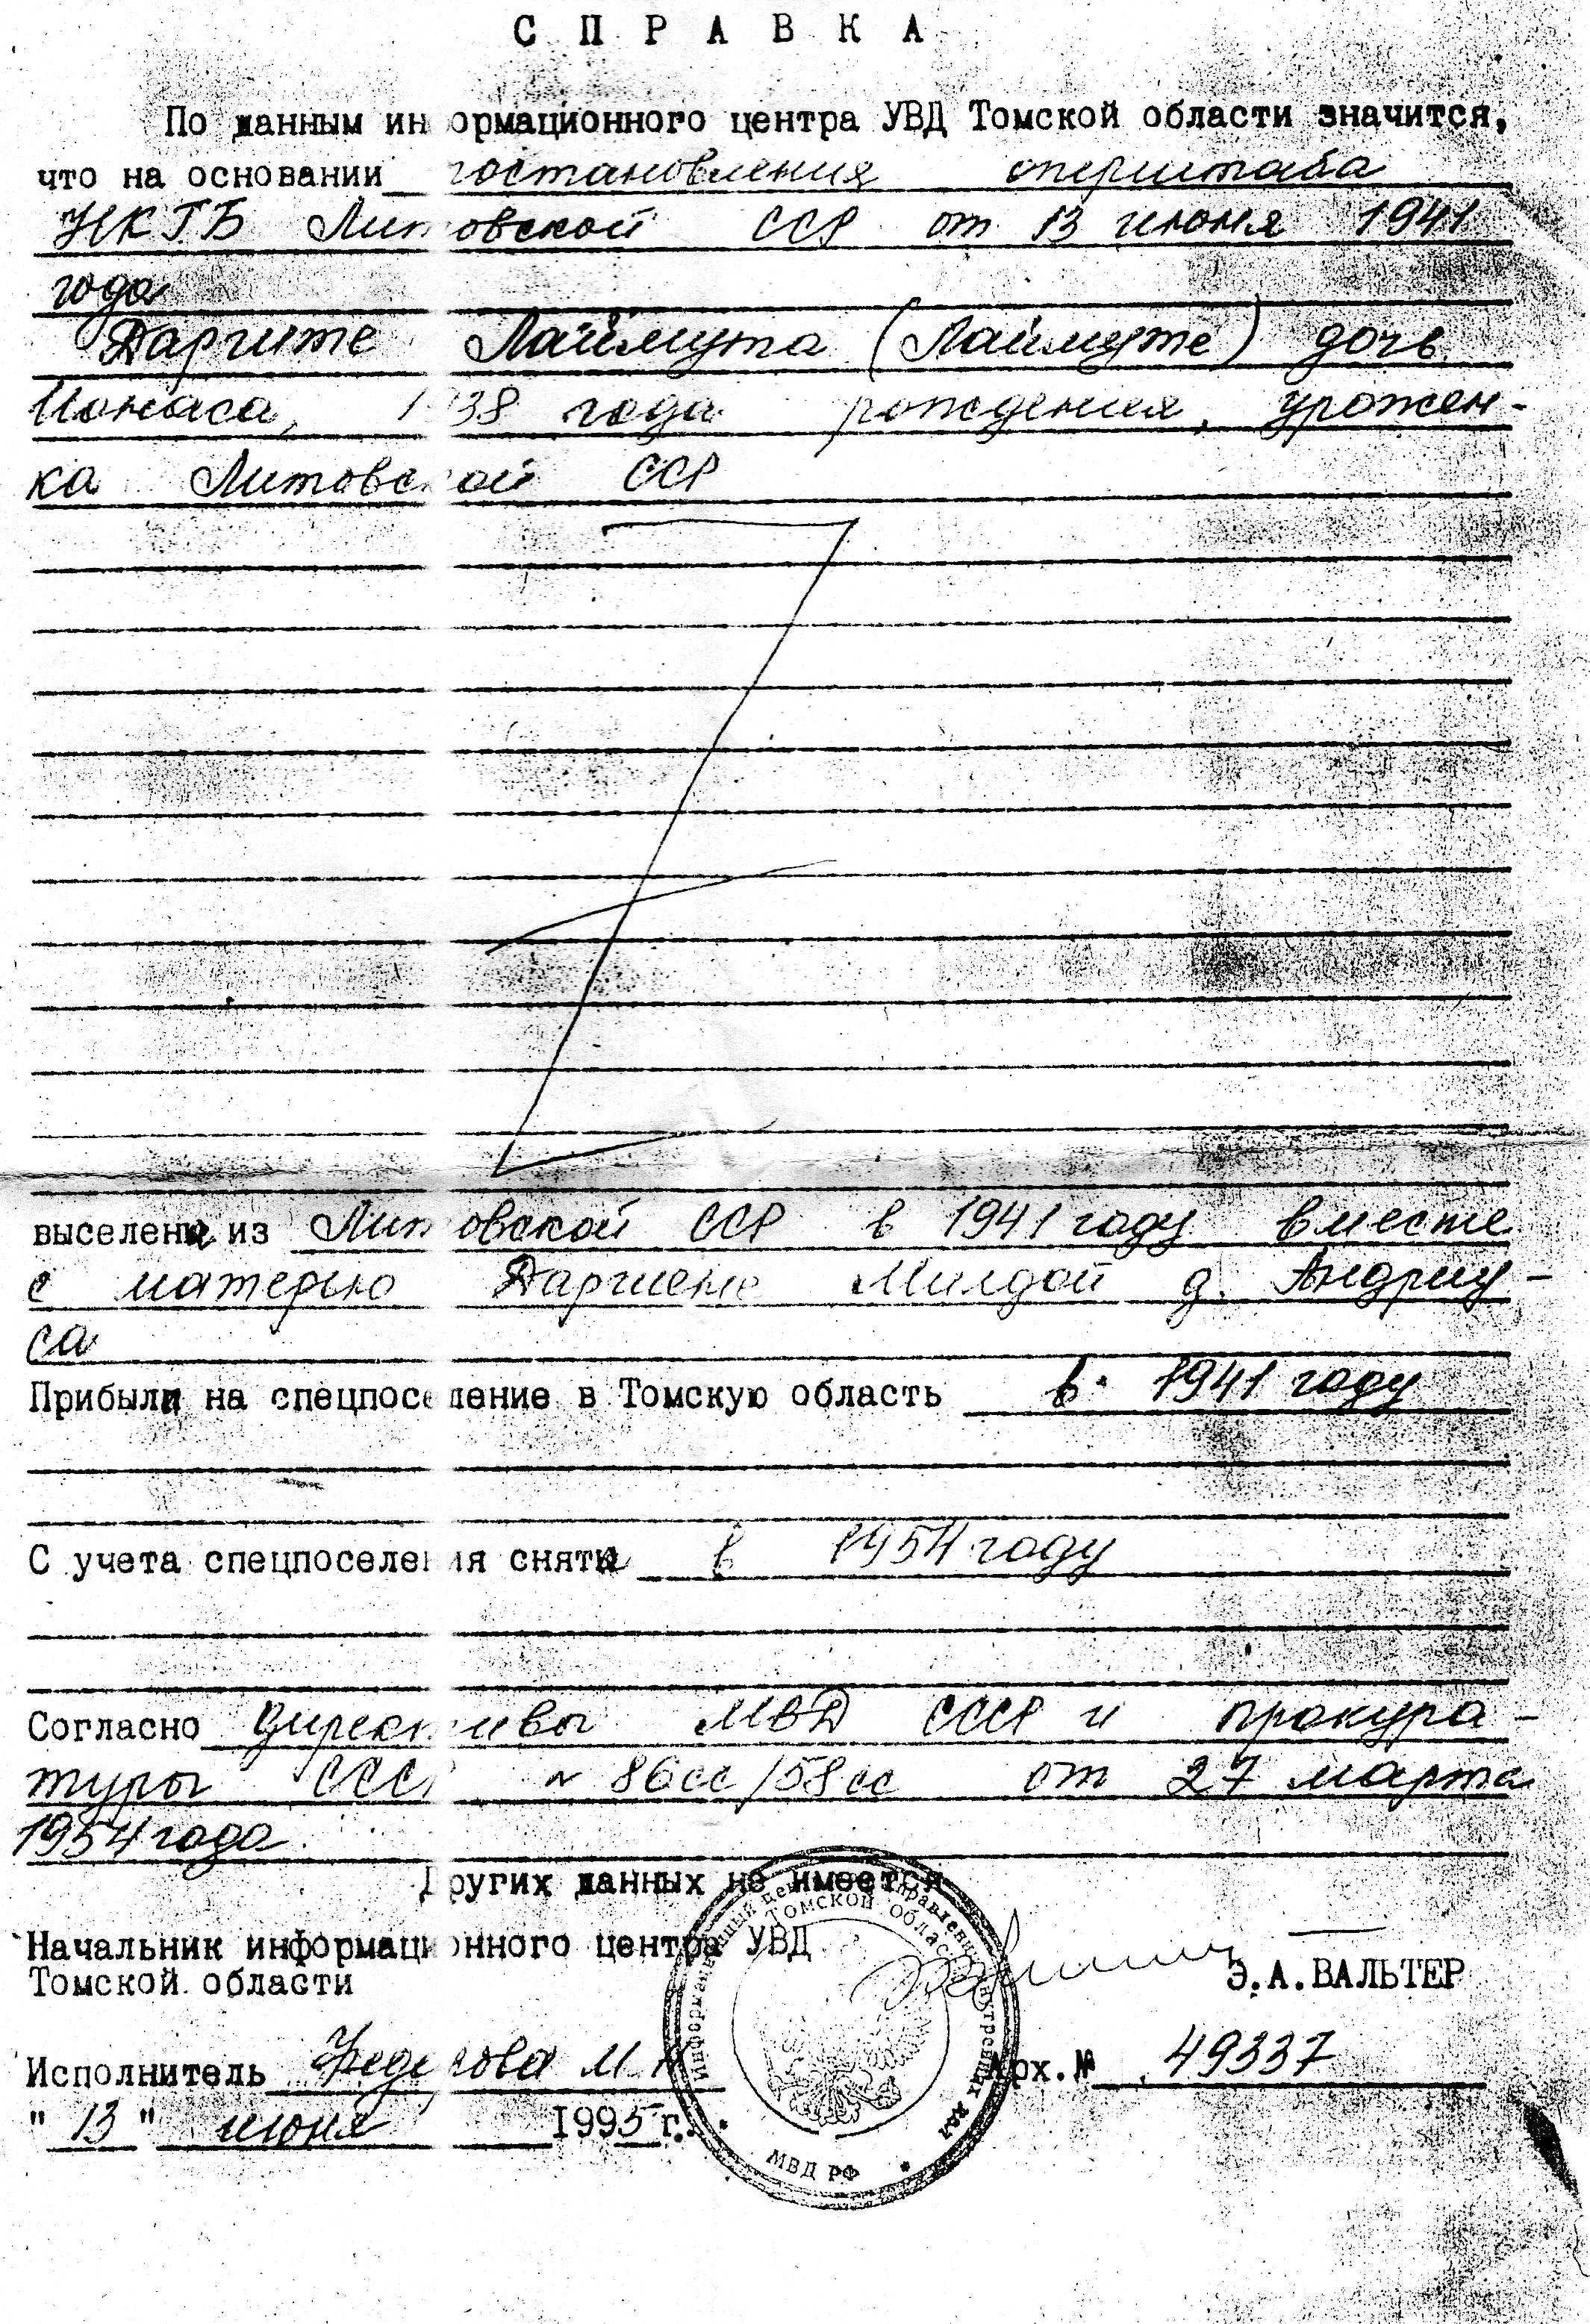 С П Р А В К А
По данным ин ормационного центра УВД Томской области значится,
что на основании постановления оперштаба
НКГБ Литовской ССР от 13 июня 1941
года
Даргите Лаймута (Лаймуте) дочь
Йонаса, 1938 года рождения, урожен-
ка Литовской ССР
выселена из Литовской ССР в 1941 году вместе
с матерью Даргиене Милдой д. Андриу-
са
Прибыли на спецпоселение в Томскую область в 1941 году
С учета спецпоселения снята в 1954 году
Согласно директивы МВД СССР и прокура-
туры СССР № 86сс/58сс от 27 марта
1954 года
Других данных не имеется
Начальник информационного центра УВД
Томской области
Э.А.ВАЛЬТЕР
Исполнитель Федорова М.Н
Арх.№ 49337
" 13 " июня 1995 г.
Информационный центр Управления внутренних дел
Томской области
МВД РФ